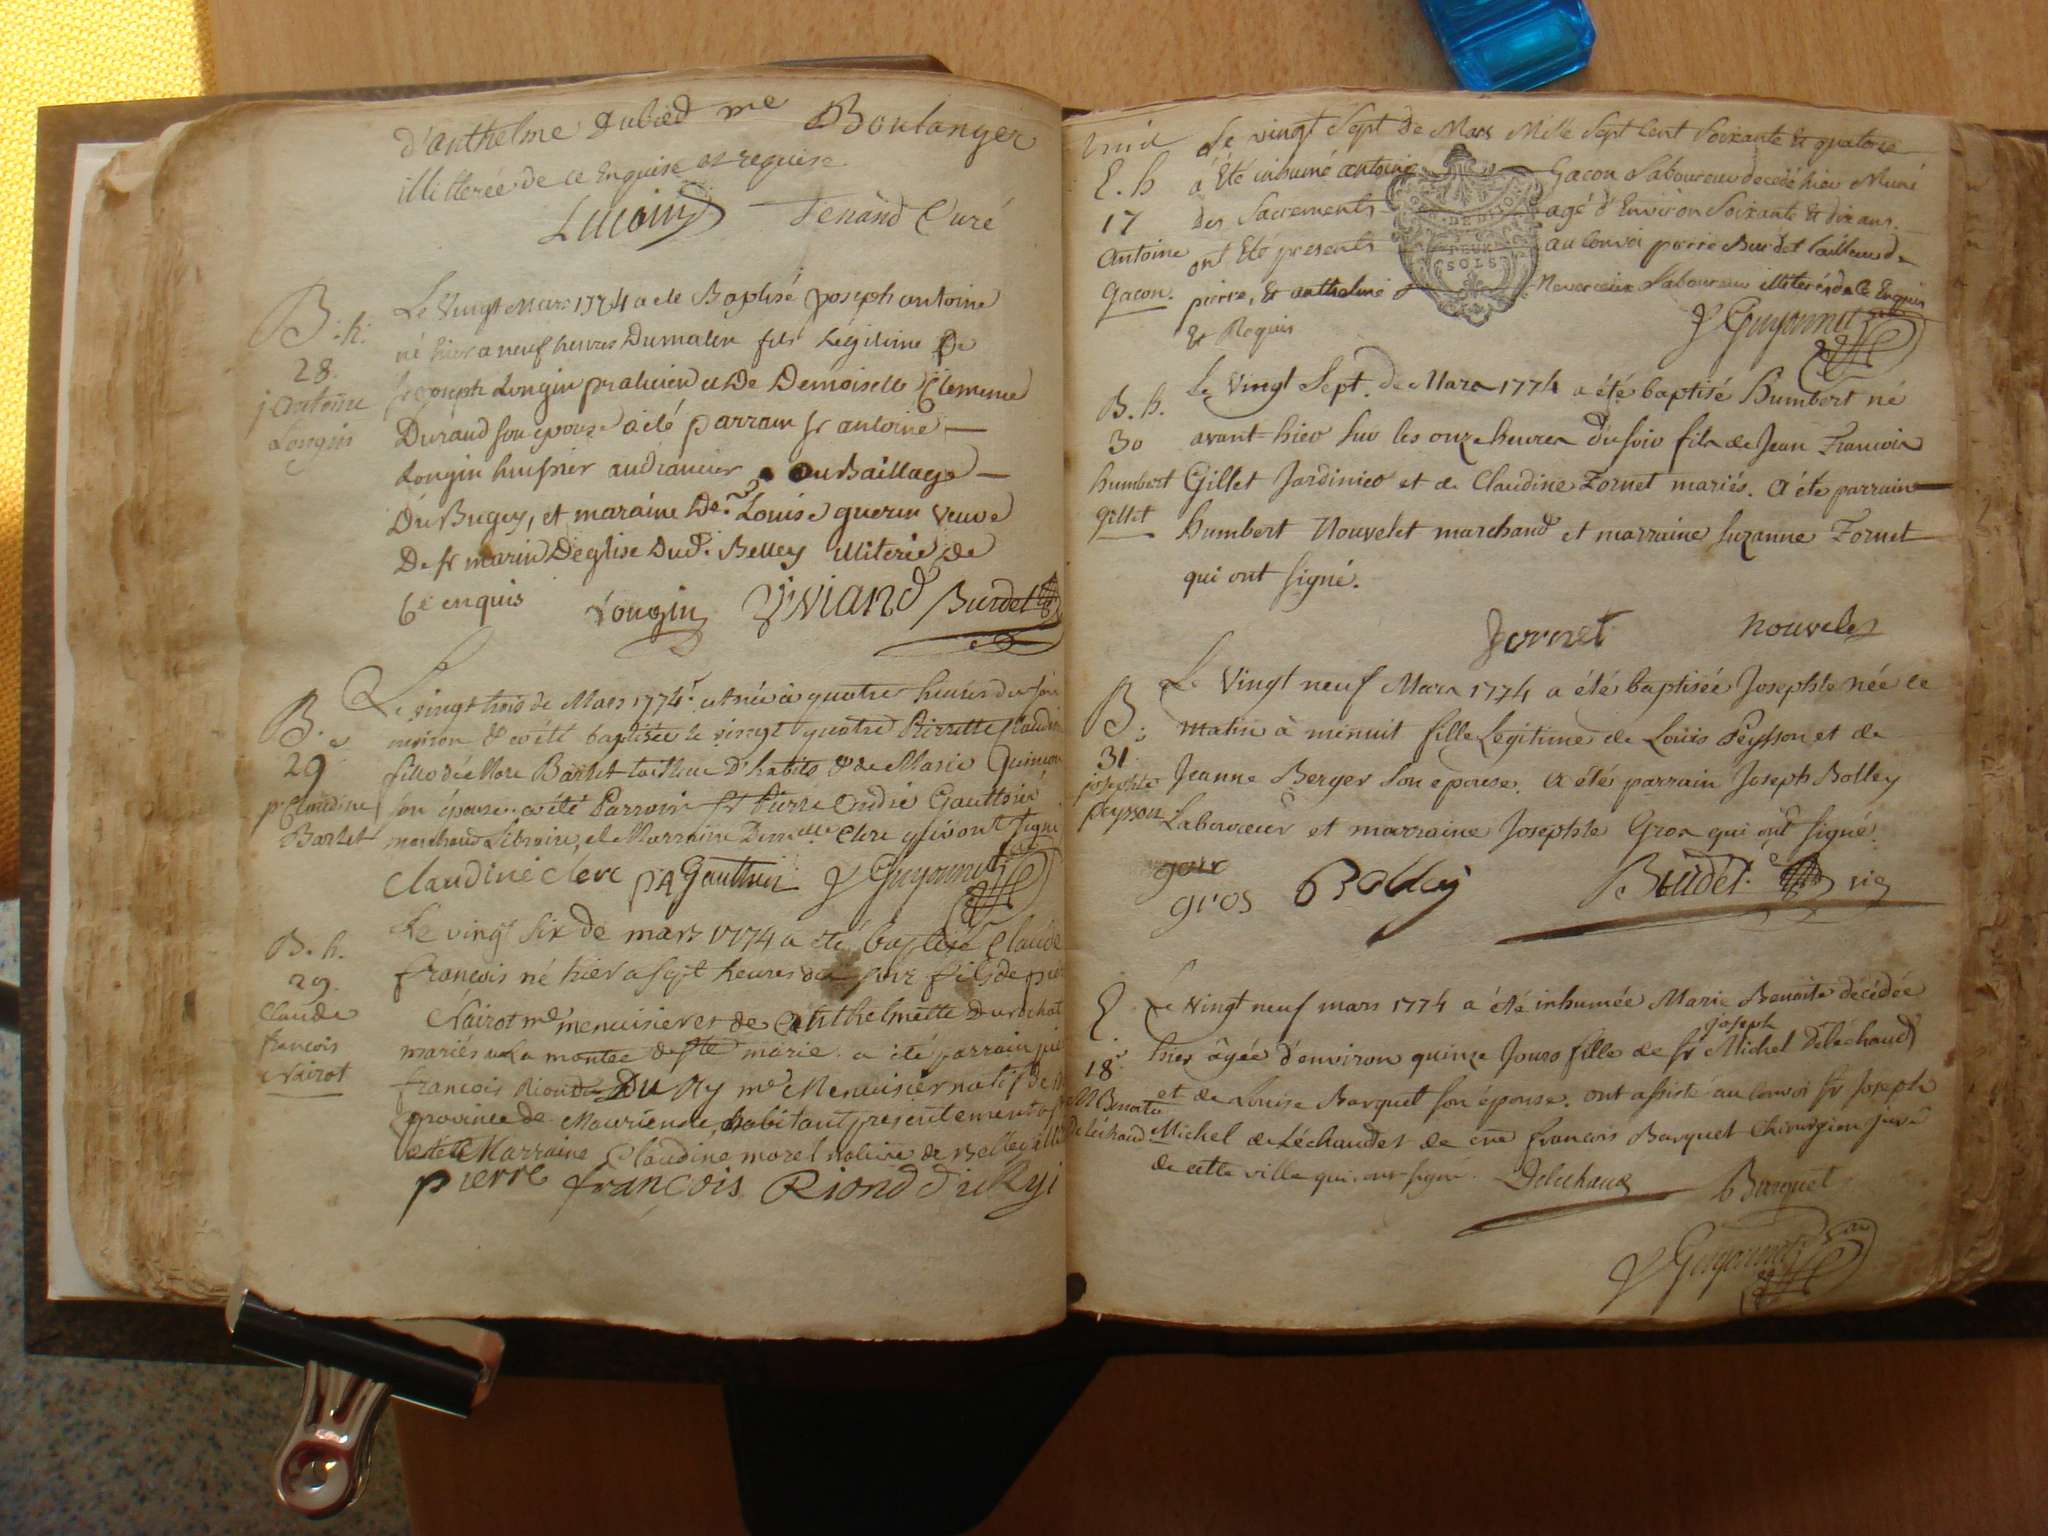 d'anthelme Dubied me Boulanger
illitterée de ce Enquise et requise
Tenand Curé
B. h.
28.
j antoine
Longin
Le Vingt Mars 1774 a eté Baptisé joseph antoine
né hier a neuf heures Du matin fils Légitime De
sr joseph Longin praticien et De Demoiselle Clemence
Durand son epouse a eté parrain sr antoine
Longin huissier audiancier au Baillage
Du Bugey, et maraine Delle Louise guerin veuve
De sr marin Deglise Dud. Belley illiterée de
Ce enquis Longin Viviand Burdet
B.
29
p. Claudine
Barlet
Le vingt trois de Mars 1774 est née à quatre heures du soir
environ & a été baptisée le vingt quatre Pierrette Claudine
fille de More Barlet tailleur d'habits & de Marie Guinson
son épouse, a été Parrain sr Pierre André Gauthier
marchand Libraire, et Marraine Demlle Clerc qui ont signé
Claudine clerc P A Gauthier Guyonnet
B. h.
29.
Claude
françois
Nairot
Le vingt six de mars 1774 a été baptisé Claude
françois né hier a sept heures du soir fils de pierre
Nairot me menuisier et de Anthelmette Durochat
mariés a La montée de ste marie. a été parrain pierre
françois Riond Du Ry me Menuisier natif de
province de Maurienne, habitant presentement
et été Marraine Claudine morel native de Belley
pierre françois Riond du Ryi
E. h
17
Antoine
Gacon.
Le vingt Sept De Mars Mille Sept Cent Soixante & quatorze
a Été inhumé antoine Gacon Laboureur decedé hier Muni
Des Sacrements agé d'Environ Soixante & dix ans.
ont Eté presents au Convoi pierre Burdet tailleur de
pierre, & anthelme Laboureur illiterés de Ce Enquis
& Requis Guyonnet
B. h.
30
humbert
gillet
Le Vingt Sept. de Mars 1774 a été baptisé Humbert né
avant-hier sur les onze heures du soir fils de Jean François
Gillet Jardinier et de Claudine Fornet mariés. A été parrain
humbert Nouvelet marchand et marraine suzanne Fornet
qui ont signé.
fornet nouvelet
B.
31
josephte
peysson
Le Vingt neuf Mars 1774 a été baptisée Josephte née ce
matin à minuit fille Legitime de Loüis Peysson et de
Jeanne Berger son epouse. a été parrain Joseph Bolley
Laboureur et marraine Josephte Gros qui ont signé.
gros Bolley Burdet vic
E.
18
M Benoite
Deléchaud
Le Vingt neuf mars 1774 a été inhumée Marie Benoite décédée
hier âgée d'environ quinze Jours fille de Sr joseph Michel Deléchaud
et de Louise Barquet son épouse. ont assisté au Convoi Sr Joseph
Michel de Léchaud et de me françois Barquet Chirurgien juré
de cette ville qui ont signé. Delechaud Barquet
Guyonnet